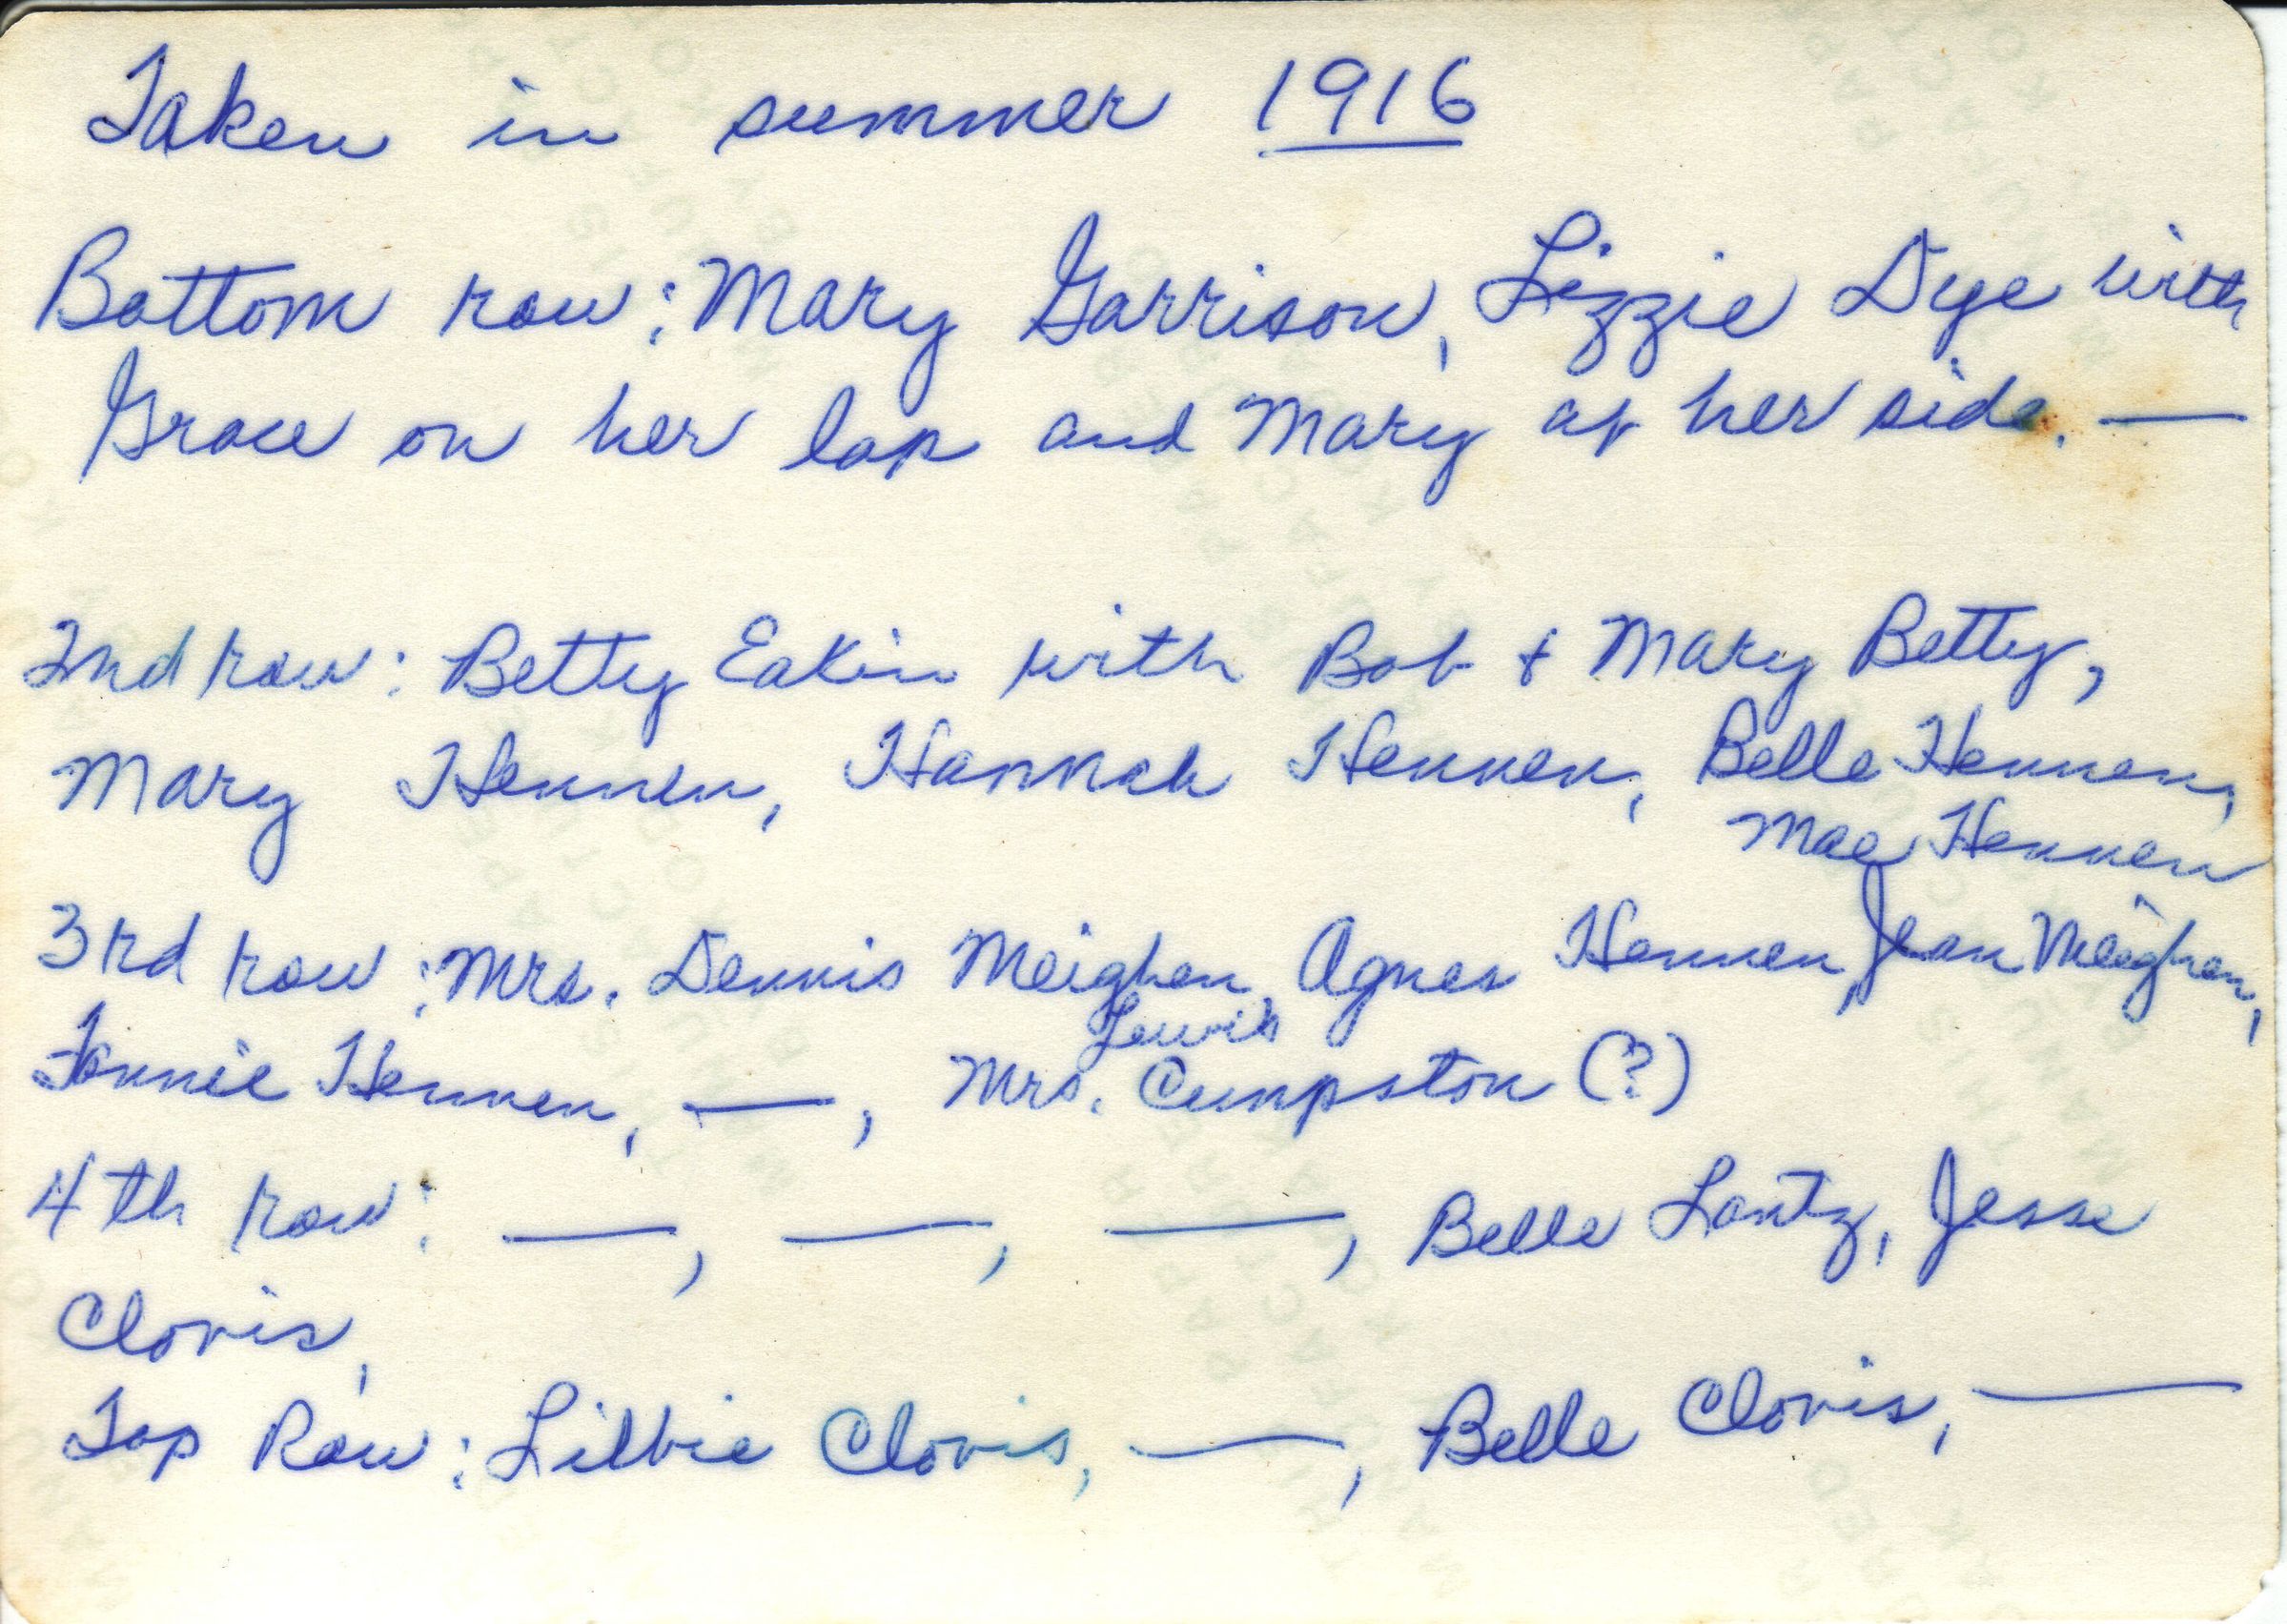 Taken in summer 1916
Bottom row: Mary Garrison, Lizzie Dye with
Grace on her lap and Mary at her side. —
2nd row: Betty Eakin with Bob & Mary Betty,
Mary Hennen, Hannah Hennen, Belle Hennen,
Mae Hennen
3rd row: Mrs. Dennis Meighen, Agnes Hennen, Jean Meighen,
Lewis
Fannie Hennen, —, Mrs. Cumpston (?)
4th row: —, —, —, Belle Lantz, Jesse
Clovis,
Top Row: Libbie Clovis, —, Belle Clovis, —